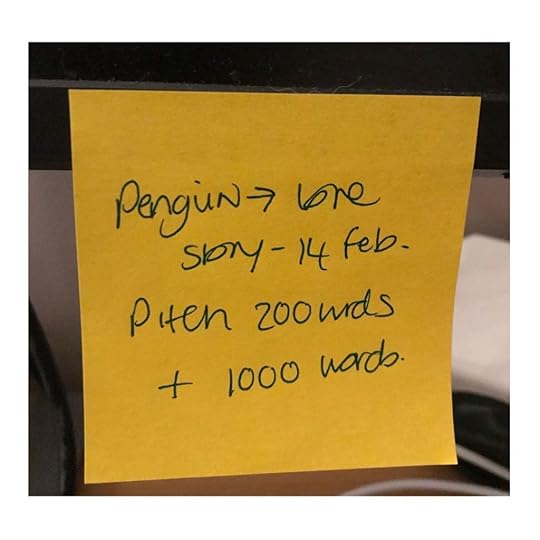 Penguin → love
story - 14 Feb.
Pitch 200 wrds
+ 1000 words.